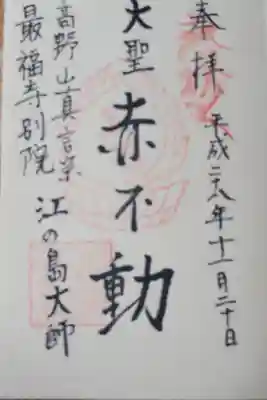 奉拝
平成二十八年十一月二十日
大聖
赤不動
高野山真言宗
最福寺別院
江の島大師